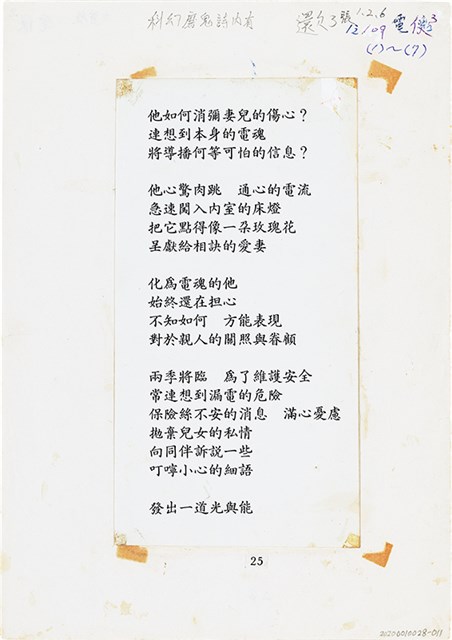 科幻魔鬼詩內有
1.2.6
12/09 電使3
(1)～(7)
他如何消彌妻兒的傷心？
連想到本身的電魂
將導播何等可怕的信息？
他心驚肉跳　通心的電流
急速闖入內室的床燈
把它點得像一朵玫瑰花
呈獻給相訣的愛妻
化爲電魂的他
始終還在担心
不知如何　方能表現
對於親人的關照與眷顧
兩季將臨　爲了維護安全
常連想到漏電的危險
保險絲不安的消息　滿心憂慮
拋棄兒女的私情
向同伴訴說一些
叮嚀小心的細語
發出一道光與能
25
2120600028-011